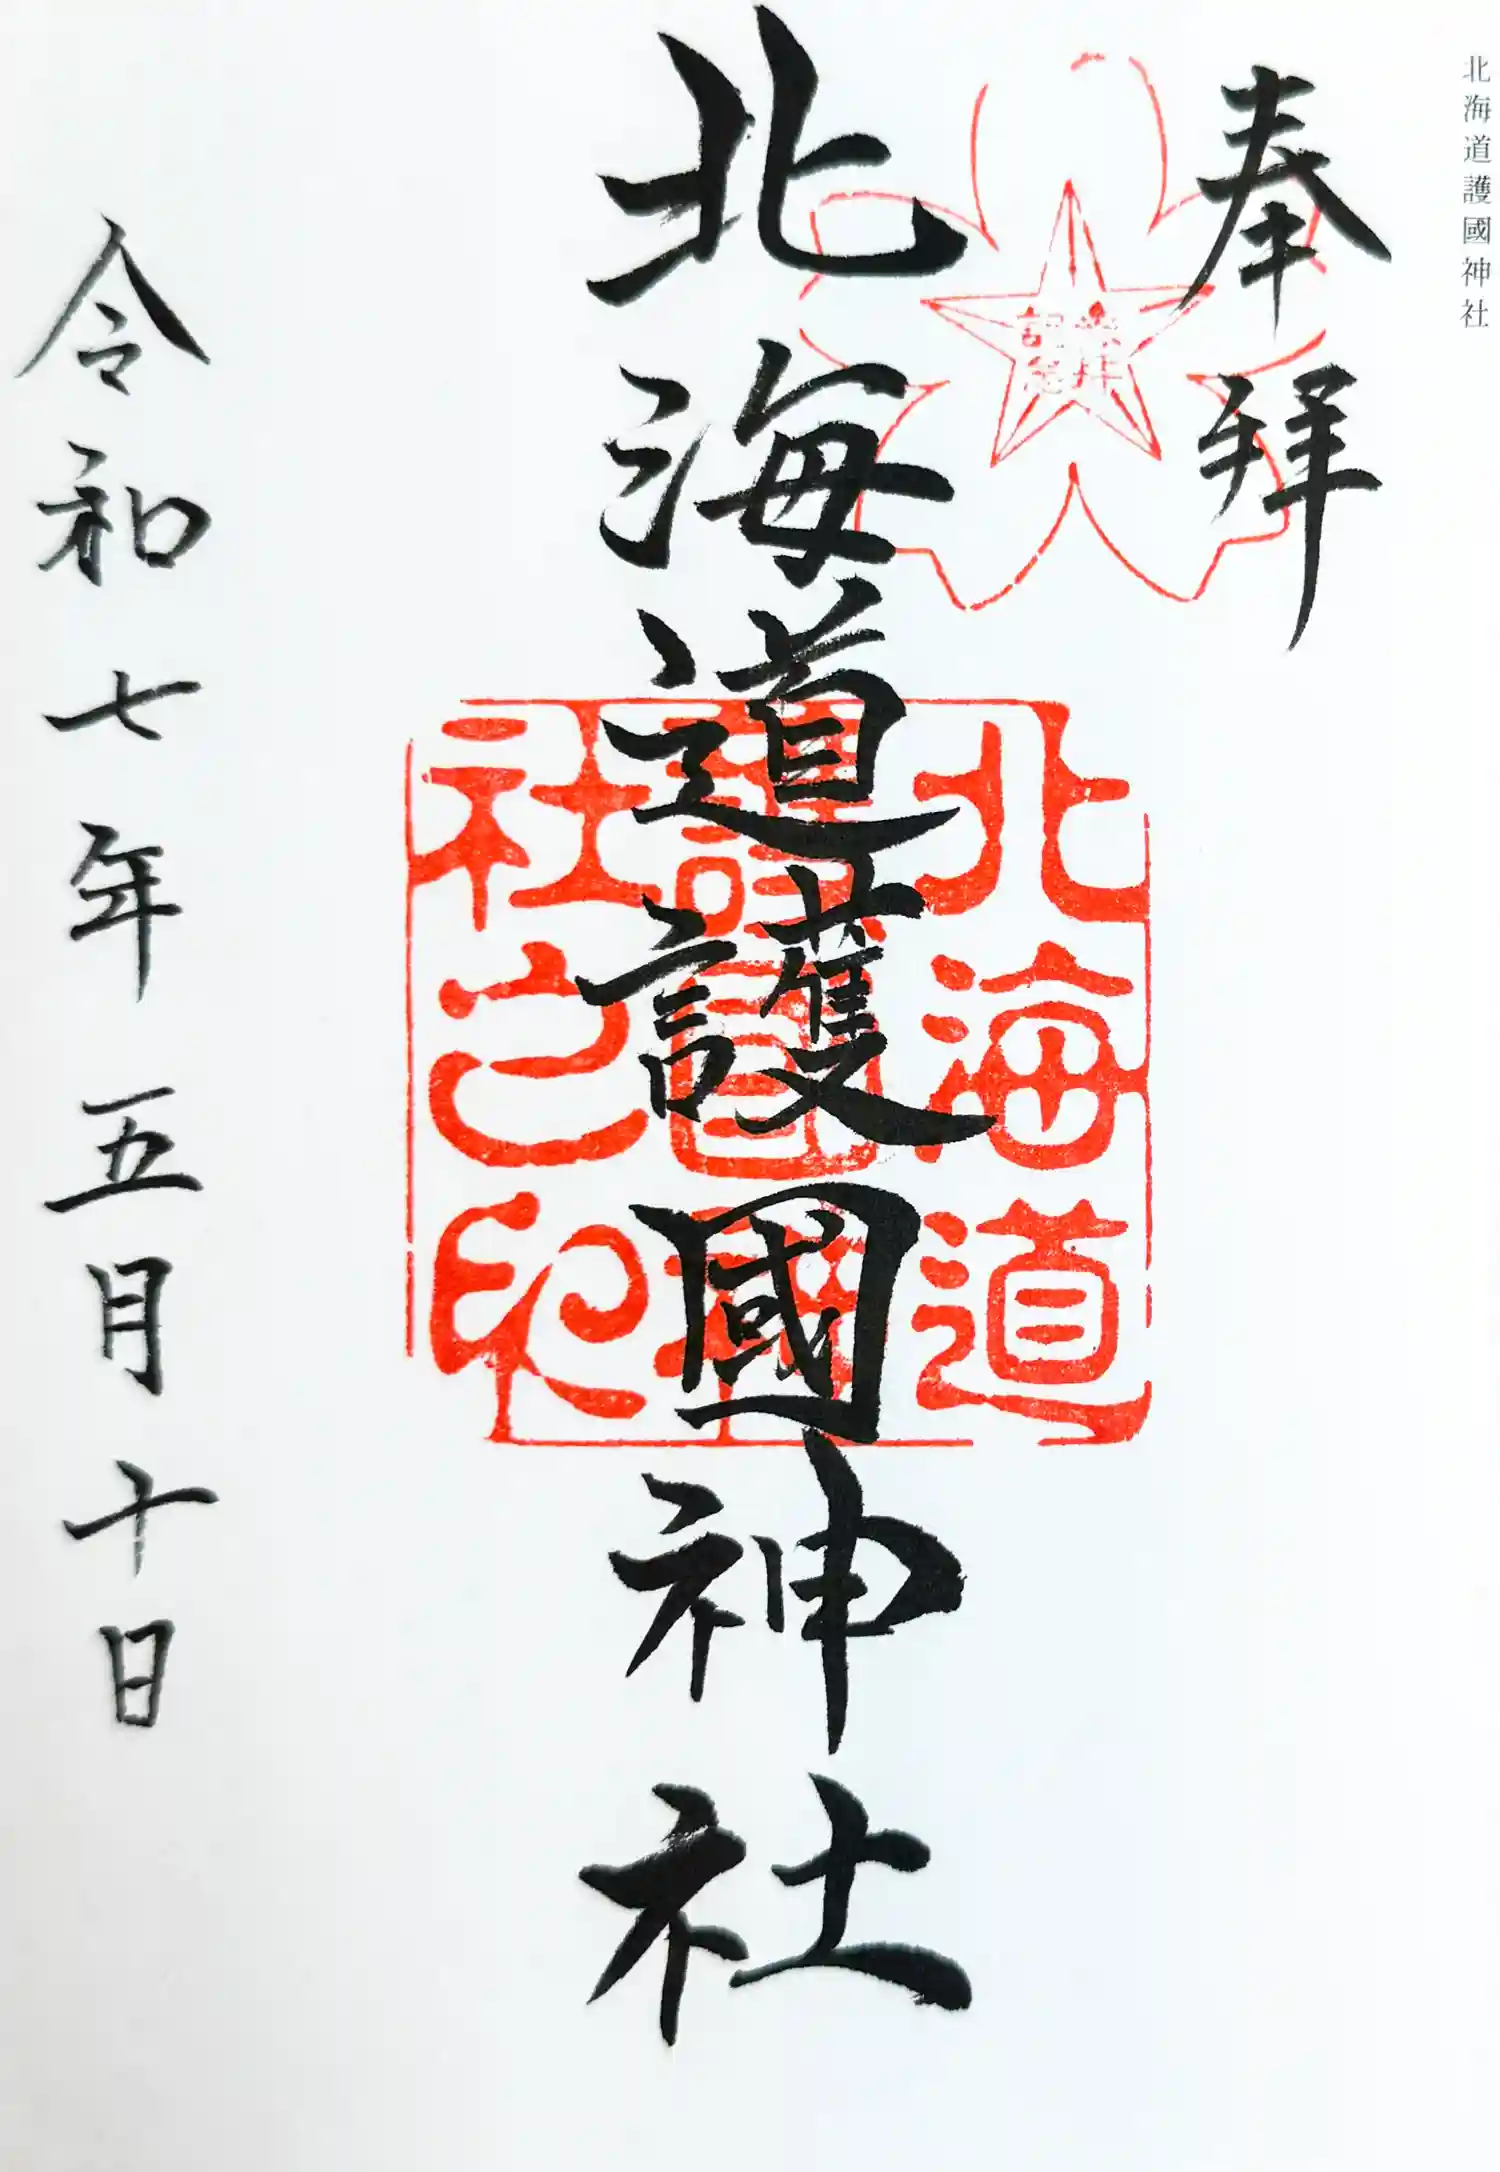 北海道護國神社
奉拝
参拝
記念
北海道護國神社
北海道
護國神
社之印
令和七年五月十日